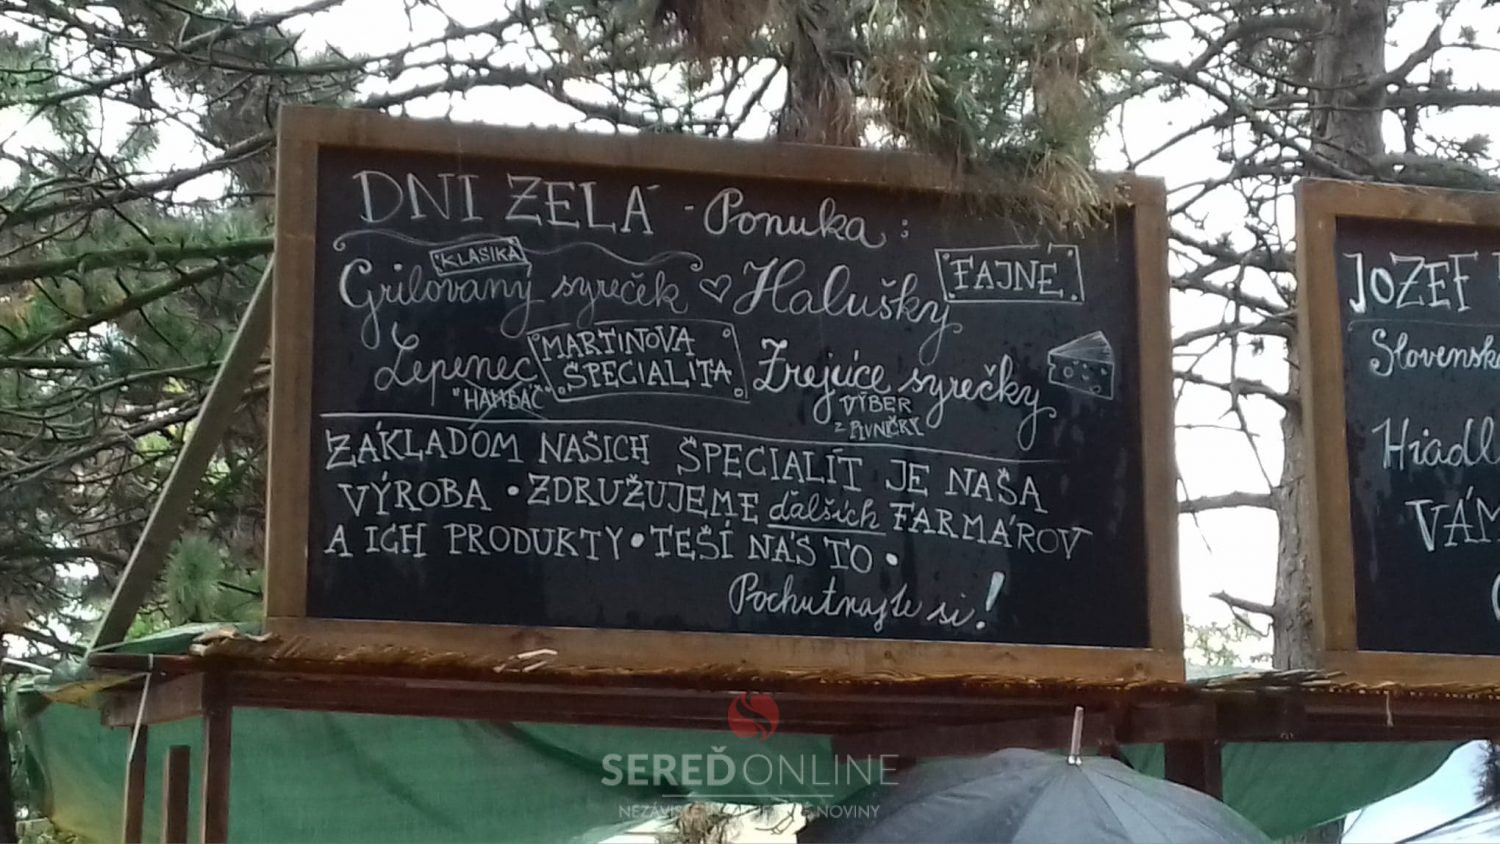 DNI ZELÁ - Ponuka:
KLASIKA
Grilovaný syreček ♡ Halušky FAJNE
Lepenec MARTINOVA ŠPECIALITA Zrejúce syrečky
"HAMBÁČ"
VÝBER
z PIVNIČKY
ZÁKLADOM NAŠICH ŠPECIALÍT JE NAŠA
VÝROBA • ZDRUŽUJEME ďalších FARMÁROV
A ICH PRODUKTY • TEŠÍ NÁS TO •
Pochutnajte si!
JOZEF
Slovensk
Hiadl
VÁM
SEREĎ ONLINE
NOVINY